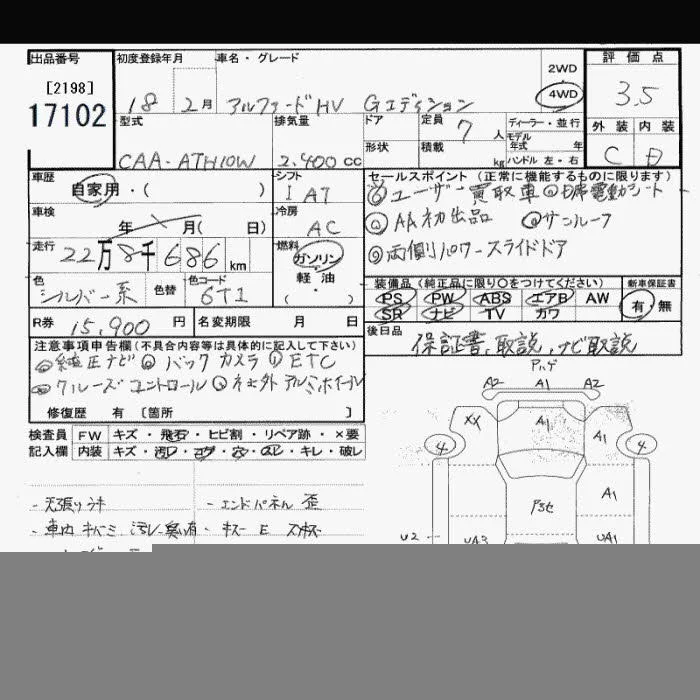 出品番号 初度登録年月 車名・グレード 評価点
[2198] 2WD
17102 18 2月 アルファードHV Gエディション 4WD 3.5
型式 排気量 ドア 定員 7人 ディーラー・並行 外装 内装
形状 積載 kg モデル年式 年
CAA-ATH10W 2.400cc ハンドル 左・右 C D
車歴 シフト セールスポイント(正常に機能するものに限ります)
自家用・( ) IAT ユーザー買取車 電動シート
車検 冷房 AA初出品 サンルーフ
年 月( 日) AC
走行 燃料 両側パワースライドドア
22万8千686km ガソリン
色 色替 色コード 軽油 装備品(純正品に限り○をつけてください) 新車保証書
シルバー系 6T1 (・) PS PW ABS エアB AW 有・無
SR ナビ TV カワ
R券 15,900円 名変期限 月 日 後日品
保証書、取説、ナビ取説
注意事項申告欄(不具合内容等は具体的に記入して下さい)
純正ナビ バックカメラ ETC
クルーズコントロール 社外アルミホイール
修復歴 有 [箇所 ]
検査員 FW キズ・飛石・ヒビ割・リペア跡・×要
記入欄 内装 キズ・汚レ・コゲ・穴・スレ・キレ・破レ
ハゲ
A2 A1 A2
XX A1 A1
4 4
A1
- 天張りウキ - エンドパネル 歪
- 車内 汚レ 臭い有
U2 UA3 UA1